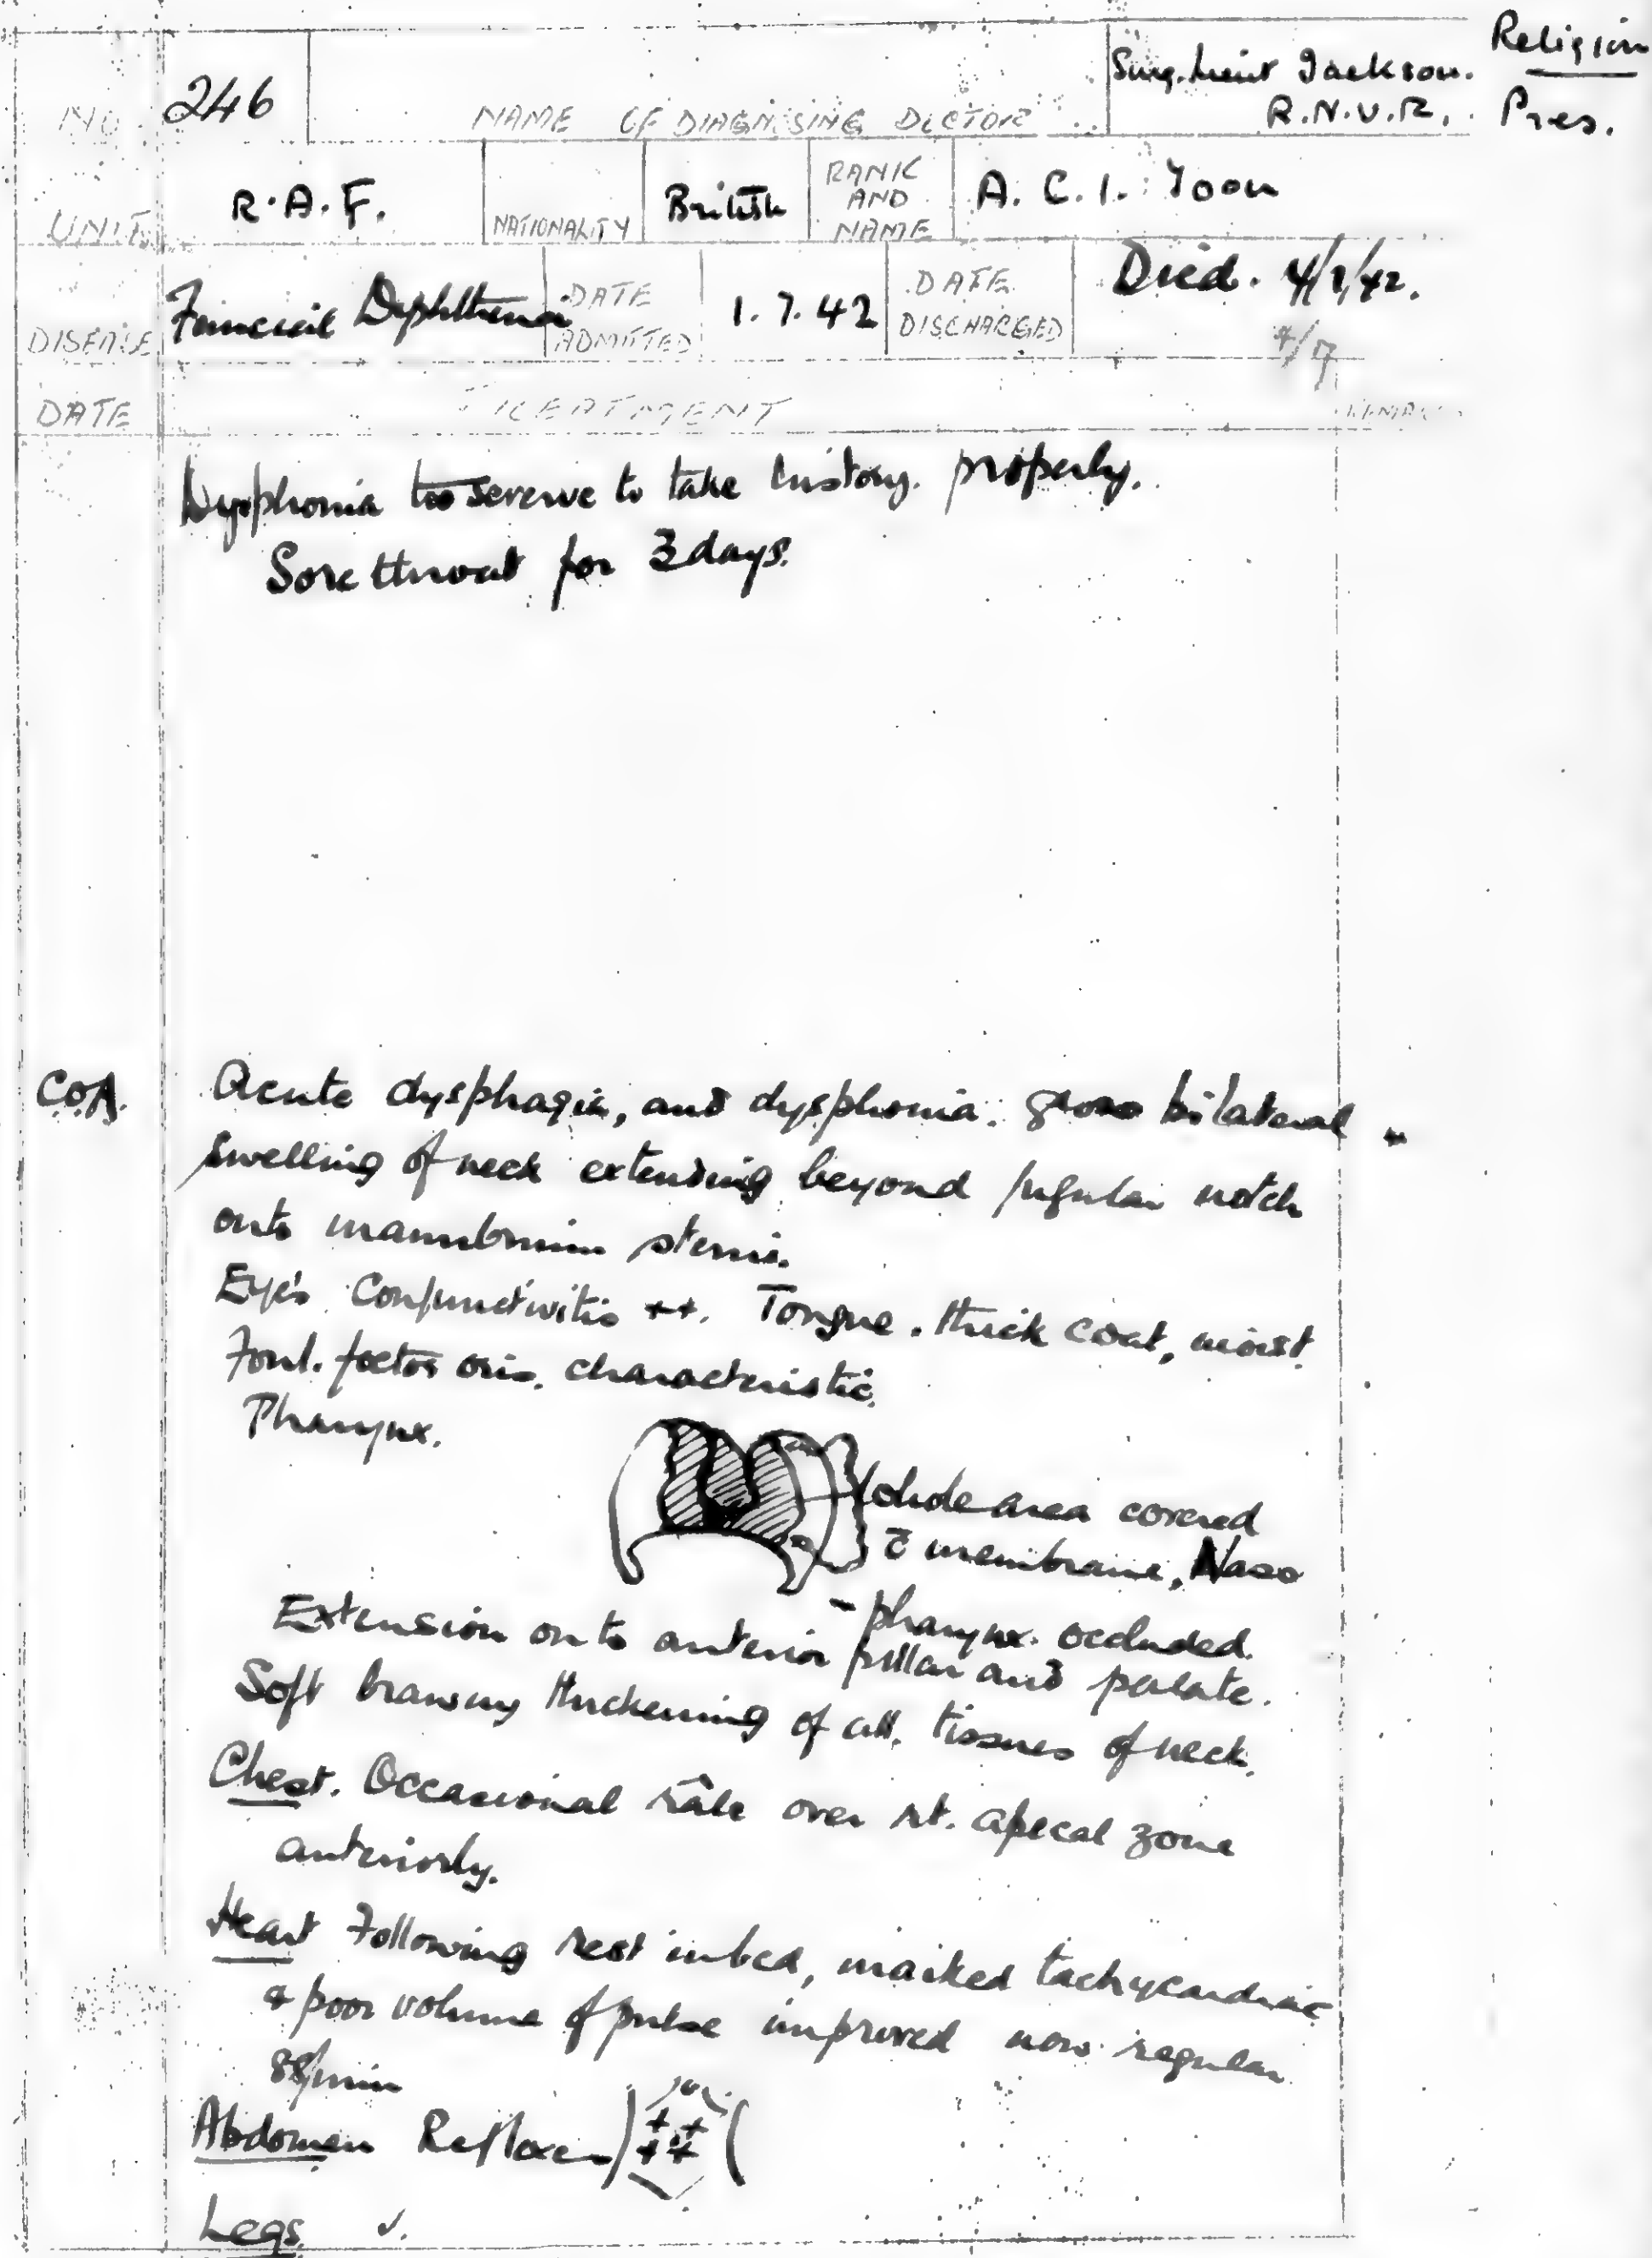 Religion
Pres.
NO. 246 NAME OF DIAGNOSING DOCTOR Surg. Lieut Jackson.
R.N.V.R.
UNIT R.A.F. NATIONALITY British RANK AND NAME A.C.1. Toon
DISEASE Faucial Diphtheria DATE ADMITTED 1.7.42 DATE DISCHARGED Died. 4/7/42.
4/7
DATE TREATMENT REMARKS
Dysphonia too severe to take history. properly.
Sore throat for 3 days.
C.O.A. Acute dysphagia, and dysphonia. gross bilateral
swelling of neck extending beyond jugular notch
onto manubrium sterni.
Eyes. Conjunctivitis ++. Tongue. thick coat, moist.
Foul. foetor oris. characteristic.
Pharynx.
Whole area covered
c̄ membrane, Naso
- pharynx. occluded.
Extension onto anterior pillar and palate.
Soft brawny thickening of all. tissues of neck.
Chest. Occasional râle over rt. apical zone
anteriorly.
Heart Following rest in bed, marked tachycardia
& poor volume of pulse improved now regular
88/min
Abdomen Reflexes ) + + + + (
Legs. ✓.